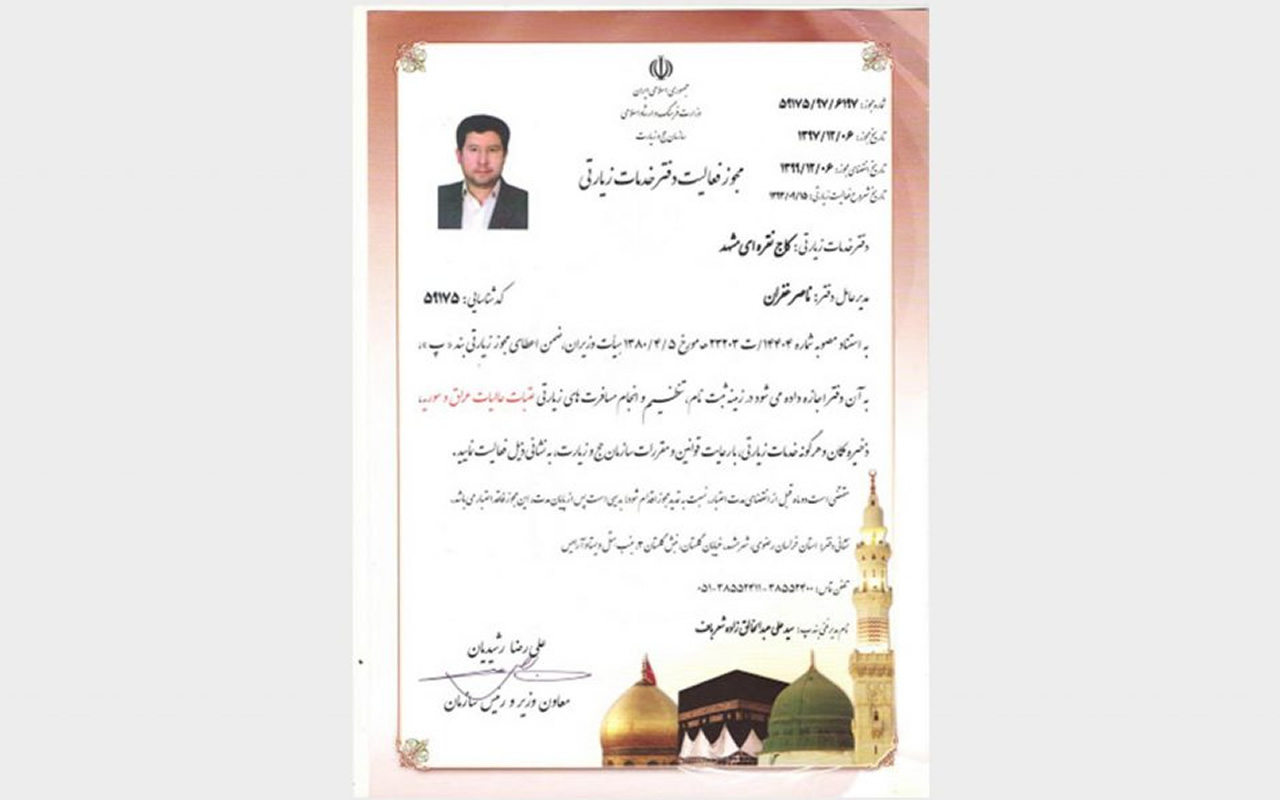 جمهوری اسلامی ایران
وزارت فرهنگ و ارشاد اسلامی
سازمان حج و زیارت
مجوز فعالیت دفتر خدمات زیارتی
شماره مجوز: ۵۹۱۷۵/۹۷/۶۱۹۷
تاریخ مجوز: ۱۳۹۷/۱۲/۰۶
تاریخ انقضای مجوز: ۱۳۹۹/۱۲/۰۶
تاریخ شروع فعالیت زیارتی: ۱۳۹۳/۰۹/۱۵
دفتر خدمات زیارتی: کاج نقره ای مشهد
مدیر عامل دفتر: ناصر
کد شناسایی: ۵۹۱۷۵
به استناد مصوبه شماره ۱۴۴۰۴/ت ۲۳۲۰۳ هـ مورخ ۱۳۸۰/۴/۵ هیأت وزیران، ضمن اعطای مجوز زیارتی بند «پ»،
به آن دفتر اجازه داده می شود در زمینه ثبت نام، تنظیم و انجام مسافرت های زیارتی عتبات عالیات عراق و سوریه،
ذخیره مکان و هرگونه خدمات زیارتی، با رعایت قوانین و مقررات سازمان حج و زیارت، به نشانی ذیل فعالیت نمایید.
مقتضی است دو ماه قبل از انقضای مدت اعتبار، نسبت به تمدید مجوز اقدام شود؛ بدیهی است پس از پایان مدت، این مجوز فاقد اعتبار می باشد.
نشانی دفتر: استان خراسان رضوی، شهر مشهد، خیابان گلستان، نبش گلستان ۳، جنب
تلفن تماس: ۳۸۵۵۲۴۰۰ - ۳۸۵۵۲۴۱۱-۰۵۱
نام مدیر فنی بند پ: سید علی عبدالخالق زاده شعرباف
علی رضا رشیدیان
معاون وزیر و رئیس سازمان